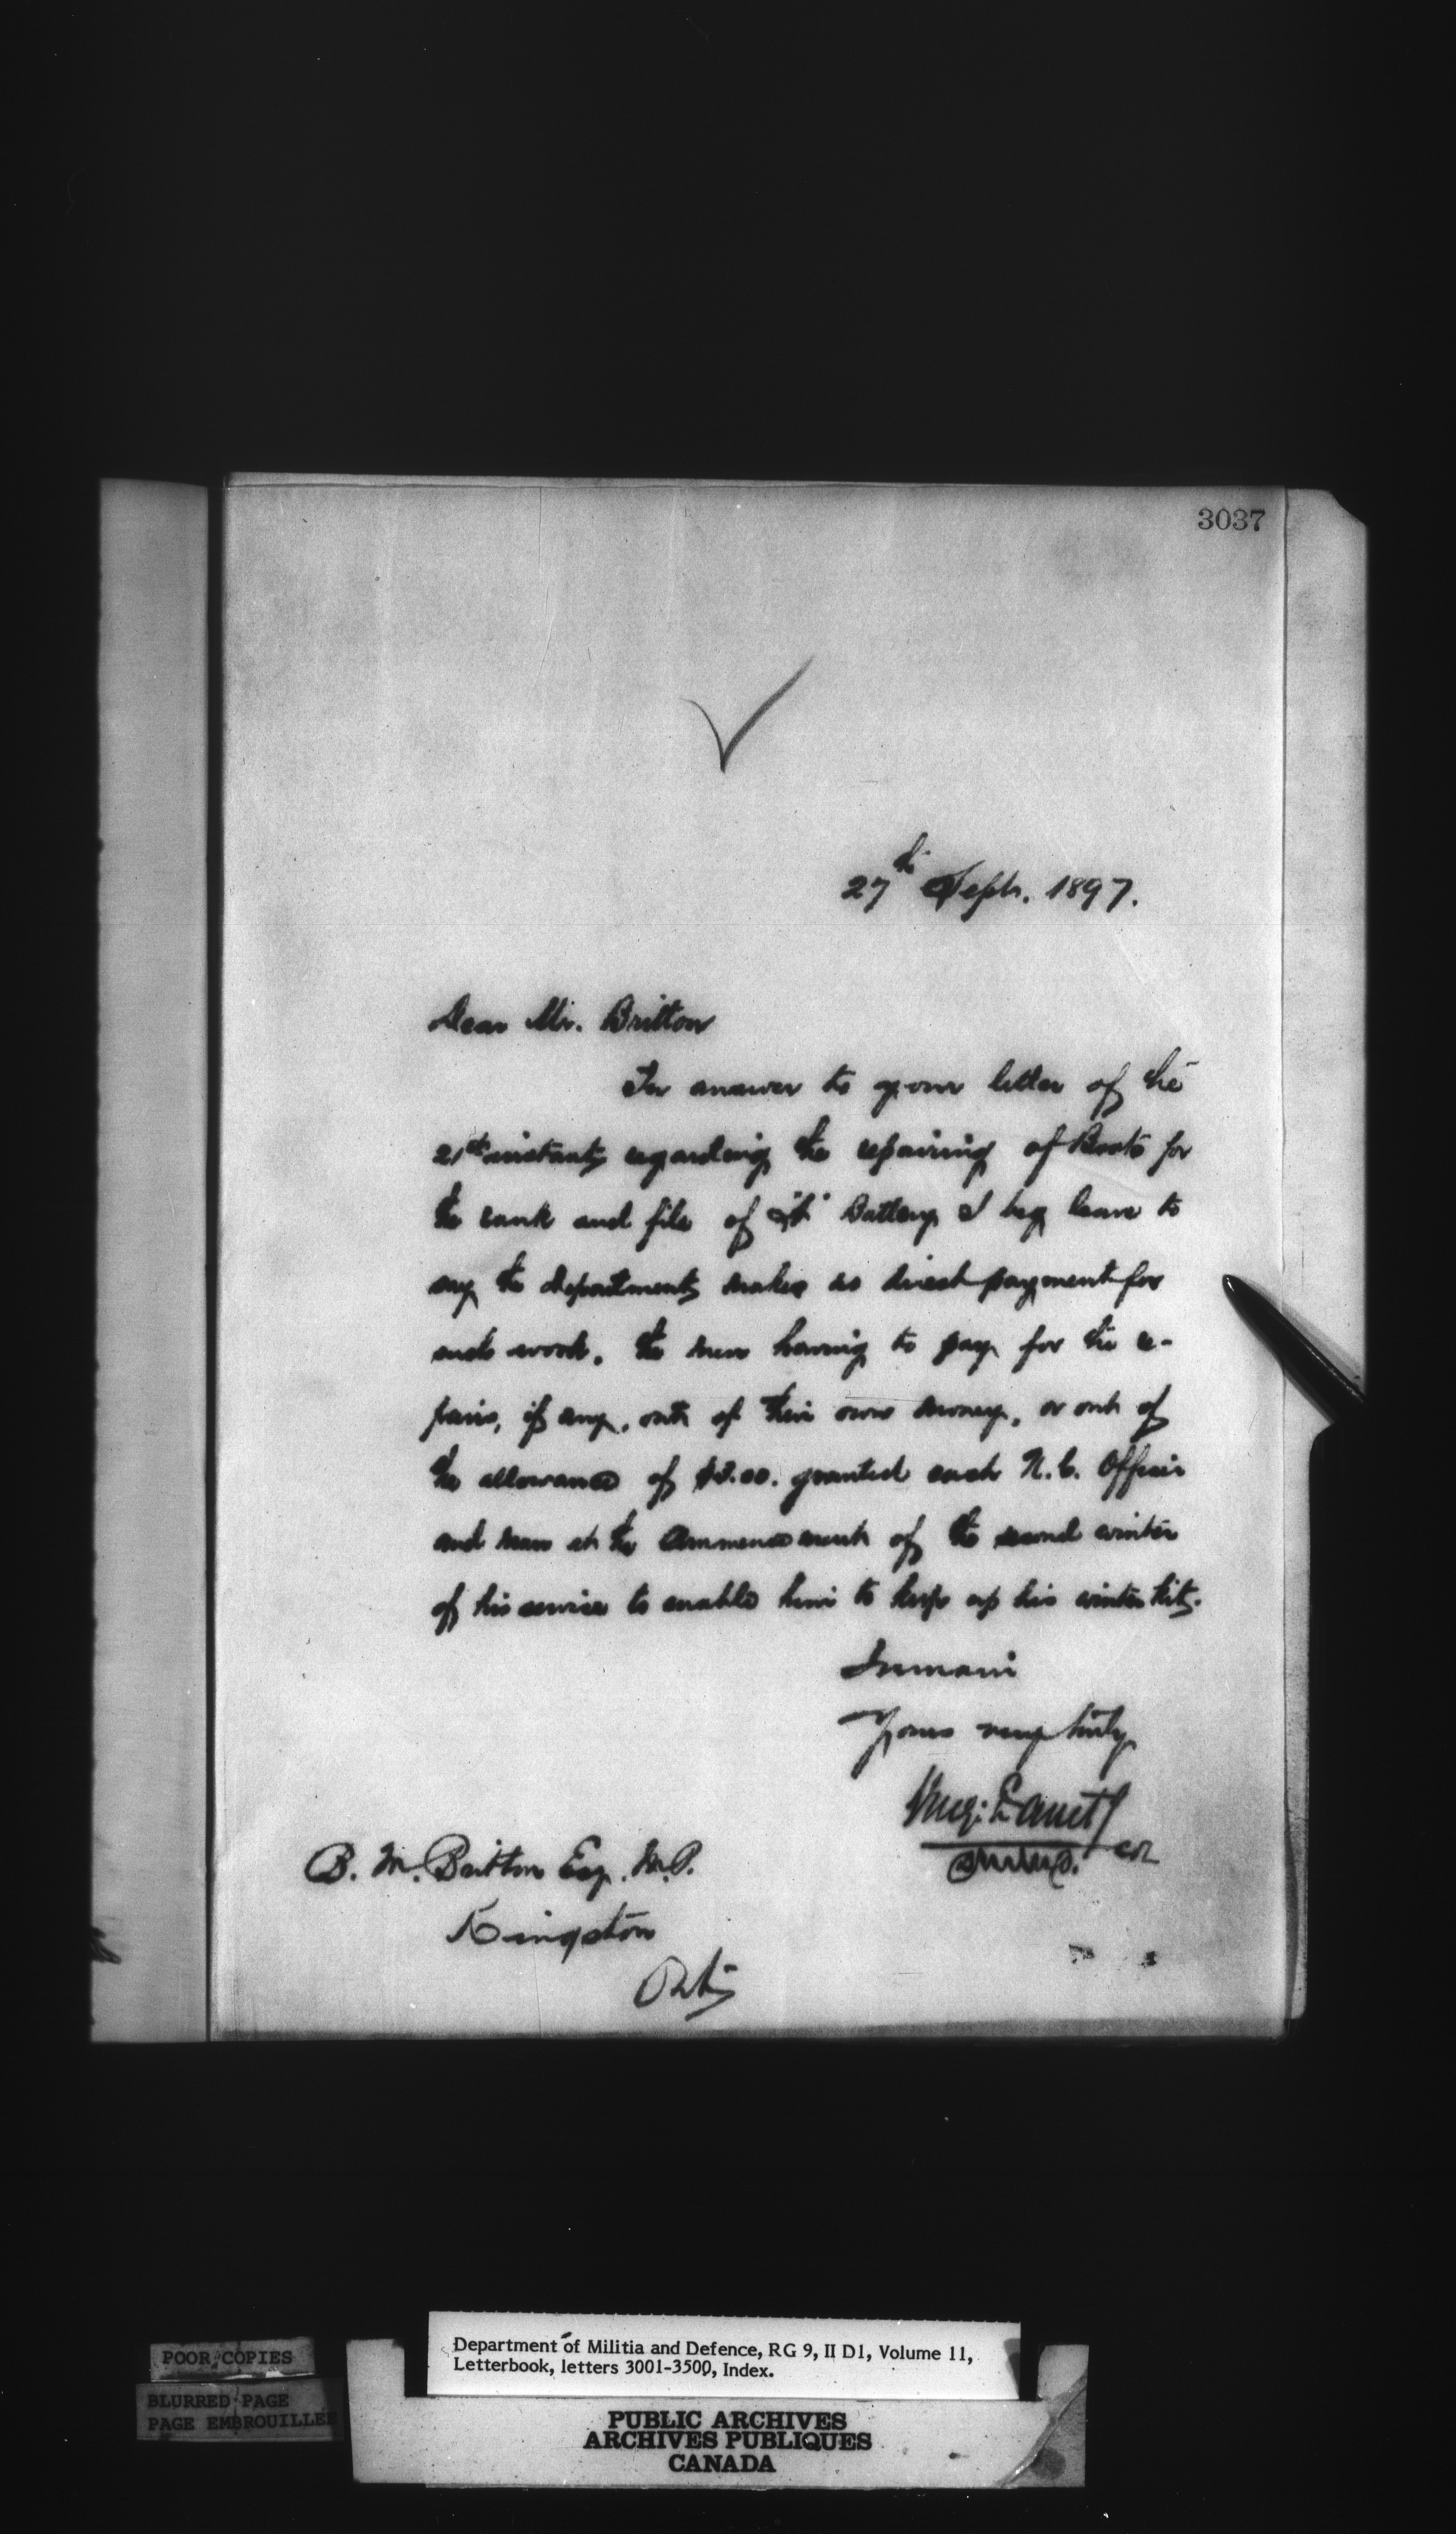 3037
27th Septr. 1897.
Dear Mr. Britton
In answer to your letter of the
21st instant, regarding the repairing of Boots for
the rank and file of "A" Battery, I beg leave to
say the department makes no direct payment for
such work, the men having to pay for the re-
pairs, if any, out of their own money, or out of
the allowance of $3.00. granted each N.C. Officer
and man at the commencement of the second winter
of his service to enable him to keep up his winter kit.
I remain
Yours very truly
Col
B. M. Britton Esq. M.P.
Kingston
Ont.
Department of Militia and Defence, RG 9, II D1, Volume 11,
Letterbook, letters 3001-3500, Index.
POOR COPIES
BLURRED PAGE
PAGE EMBROUILLEE
PUBLIC ARCHIVES
ARCHIVES PUBLIQUES
CANADA